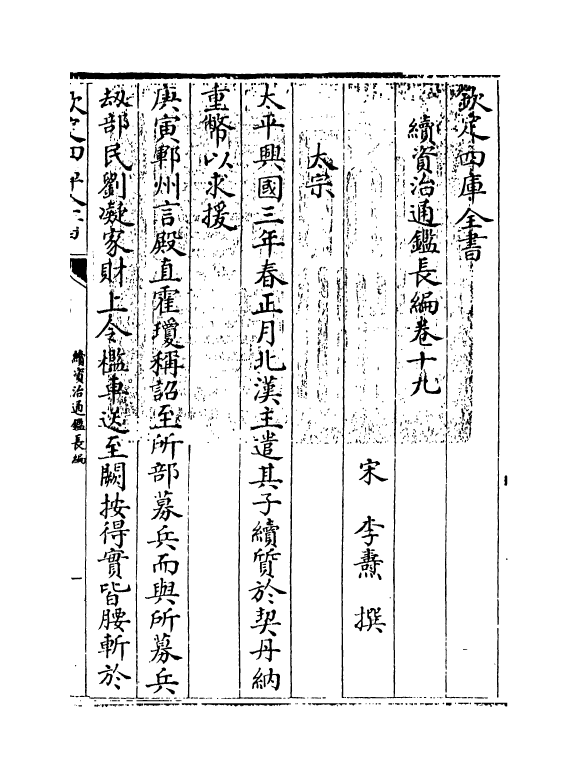 欽定四庫全書
續資治通鑑長編卷十九
宋 李燾 撰
太宗
太平興國三年春正月北漢主遣其子續質於契丹納
重幣以求援
庚寅鄆州言殿直霍瓊稱詔至所部募兵而與所募兵
刼部民劉凝家財上令檻車送至闕按得實皆腰斬於
欽定四庫全書
續資治通鑑長編
一